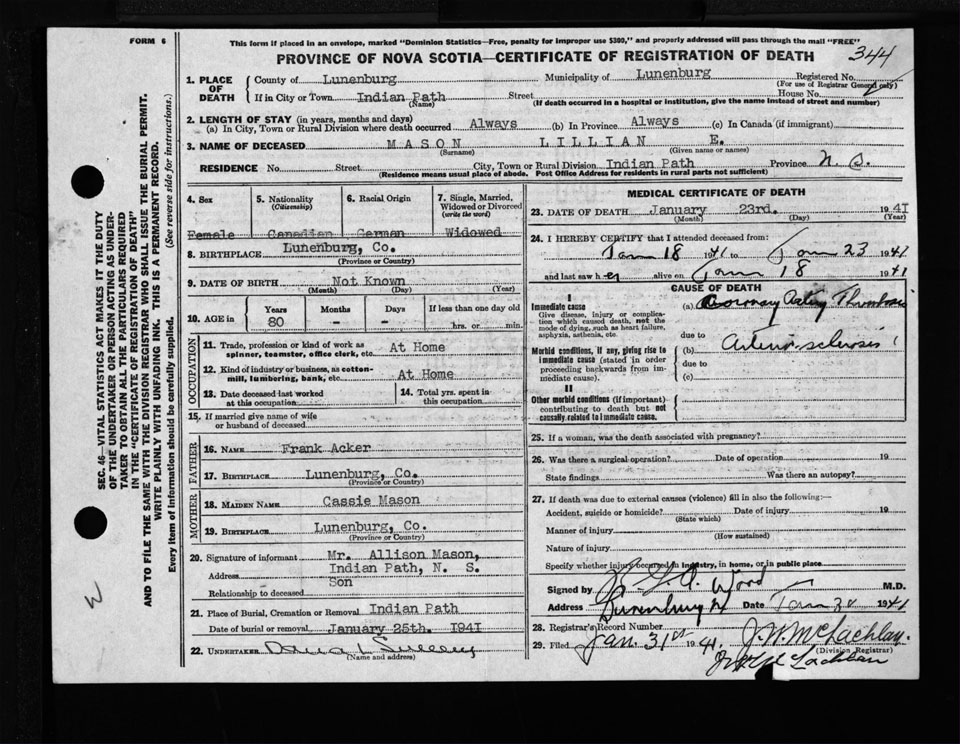 FORM 6
This form if placed in an envelope, marked "Dominion Statistics—Free, penalty for improper use $300," and properly addressed will pass through the mail "FREE"
PROVINCE OF NOVA SCOTIA—CERTIFICATE OF REGISTRATION OF DEATH
344
1. PLACE OF DEATH
County of Lunenburg Municipality of Lunenburg Registered No.
(For use of Registrar General only)
If in City or Town Indian Path Street House No.
(Name) (If death occurred in a hospital or institution, give the name instead of street and number)
2. LENGTH OF STAY (in years, months and days)
(a) In City, Town or Rural Division where death occurred Always (b) In Province Always (c) In Canada (if immigrant)
3. NAME OF DECEASED MASON LILLIAN E.
(Surname) (Given name or names)
RESIDENCE No. Street City, Town or Rural Division Indian Path Province N. S.
(Residence means usual place of abode. Post Office Address for residents in rural parts not sufficient)
4. Sex 5. Nationality (Citizenship) 6. Racial Origin 7. Single, Married, Widowed or Divorced (write the word)
Female Canadian German Widowed
8. BIRTHPLACE Lunenburg, Co.
(Province or Country)
9. DATE OF BIRTH Not Known
(Month) (Day) (Year)
10. AGE in Years Months Days If less than one day old
80 - - hrs. or min.
OCCUPATION
11. Trade, profession or kind of work as spinner, teamster, office clerk, etc. At Home
12. Kind of industry or business, as cotton-mill, lumbering, bank, etc. At Home
13. Date deceased last worked at this occupation 14. Total yrs. spent in this occupation
15. If married give name of wife or husband of deceased
FATHER
16. Name Frank Acker
17. Birthplace Lunenburg, Co.
(Province or Country)
MOTHER
18. Maiden Name Cassie Mason
19. Birthplace Lunenburg, Co.
(Province or Country)
20. Signature of informant Mr. Allison Mason,
Address Indian Path, N. S.
Relationship to deceased Son
21. Place of Burial, Cremation or Removal Indian Path
Date of burial or removal January 25th. 1941
22. Undertaker
(Name and address)
MEDICAL CERTIFICATE OF DEATH
23. DATE OF DEATH January 23rd. 1941
(Month) (Day) (Year)
24. I HEREBY CERTIFY that I attended deceased from:
Jan 18 1941 to Jan 23 1941
and last saw her alive on Jan 18 1941
CAUSE OF DEATH
I
Immediate cause
Give disease, injury or complication which caused death, not the mode of dying, such as heart failure, asphyxia, asthenia, etc.
(a) Coronary Artery Thrombosis
due to
Morbid conditions, if any, giving rise to immediate cause (stated in order proceeding backwards from immediate cause).
(b) Arterio-sclerosis
due to
(c)
II
Other morbid conditions (if important) contributing to death but not causally related to immediate cause.
25. If a woman, was the death associated with pregnancy?
26. Was there a surgical operation? Date of operation 19
State findings Was there an autopsy?
27. If death was due to external causes (violence) fill in also the following:—
Accident, suicide or homicide? Date of injury 19
(State which)
Manner of injury
(How sustained)
Nature of injury
Specify whether injury occurred in industry, in home, or in public place
Signed by Wood M.D.
Address Lunenburg Date Jan 30 1941
28. Registrar's Record Number
29. Filed Jan. 31st 1941 J. W. McLachlan.
(Division Registrar)
McLachlan
SEC. 46—VITAL STATISTICS ACT MAKES IT THE DUTY
OF THE UNDERTAKER OR PERSON ACTING AS UNDER-
TAKER TO OBTAIN ALL THE PARTICULARS REQUIRED
IN THE "CERTIFICATE OF REGISTRATION OF DEATH"
AND TO FILE THE SAME WITH THE DIVISION REGISTRAR WHO SHALL ISSUE THE BURIAL PERMIT.
WRITE PLAINLY WITH UNFADING INK. THIS IS A PERMANENT RECORD.
Every item of information should be carefully supplied. (See reverse side for instructions.)